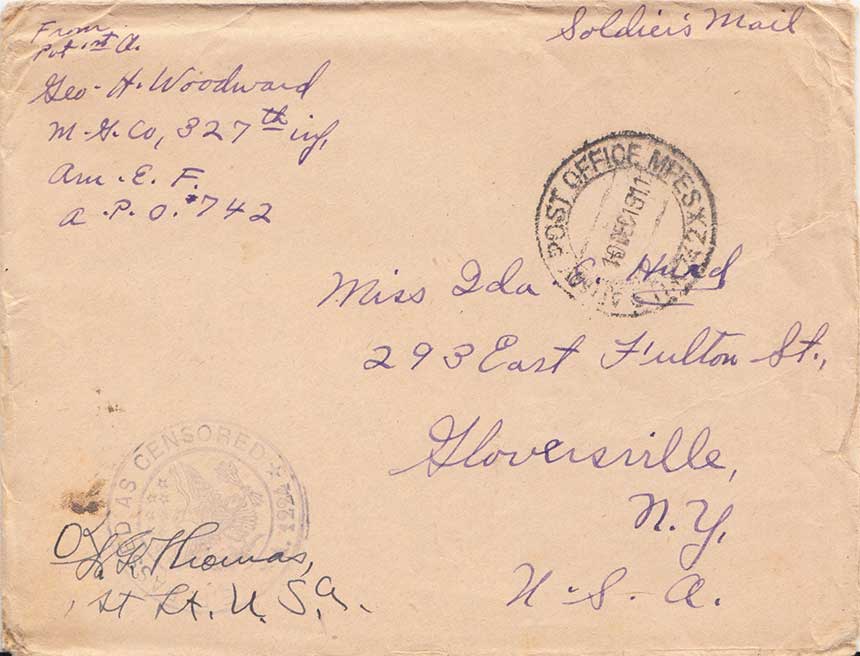 Soldier's Mail
From
Pvt 1st Cl.
Geo. H. Woodward
M. G. Co, 327th inf,
Am. E. F.
A. P. O. #742
POST OFFICE MPES X 742
DEC 191
Miss Ida C. Hurd
293 East Fulton St.,
Gloversville,
N. Y,
U. S. A.
AS CENSORED
OK Thomas,
1st Lt. U. S. A.